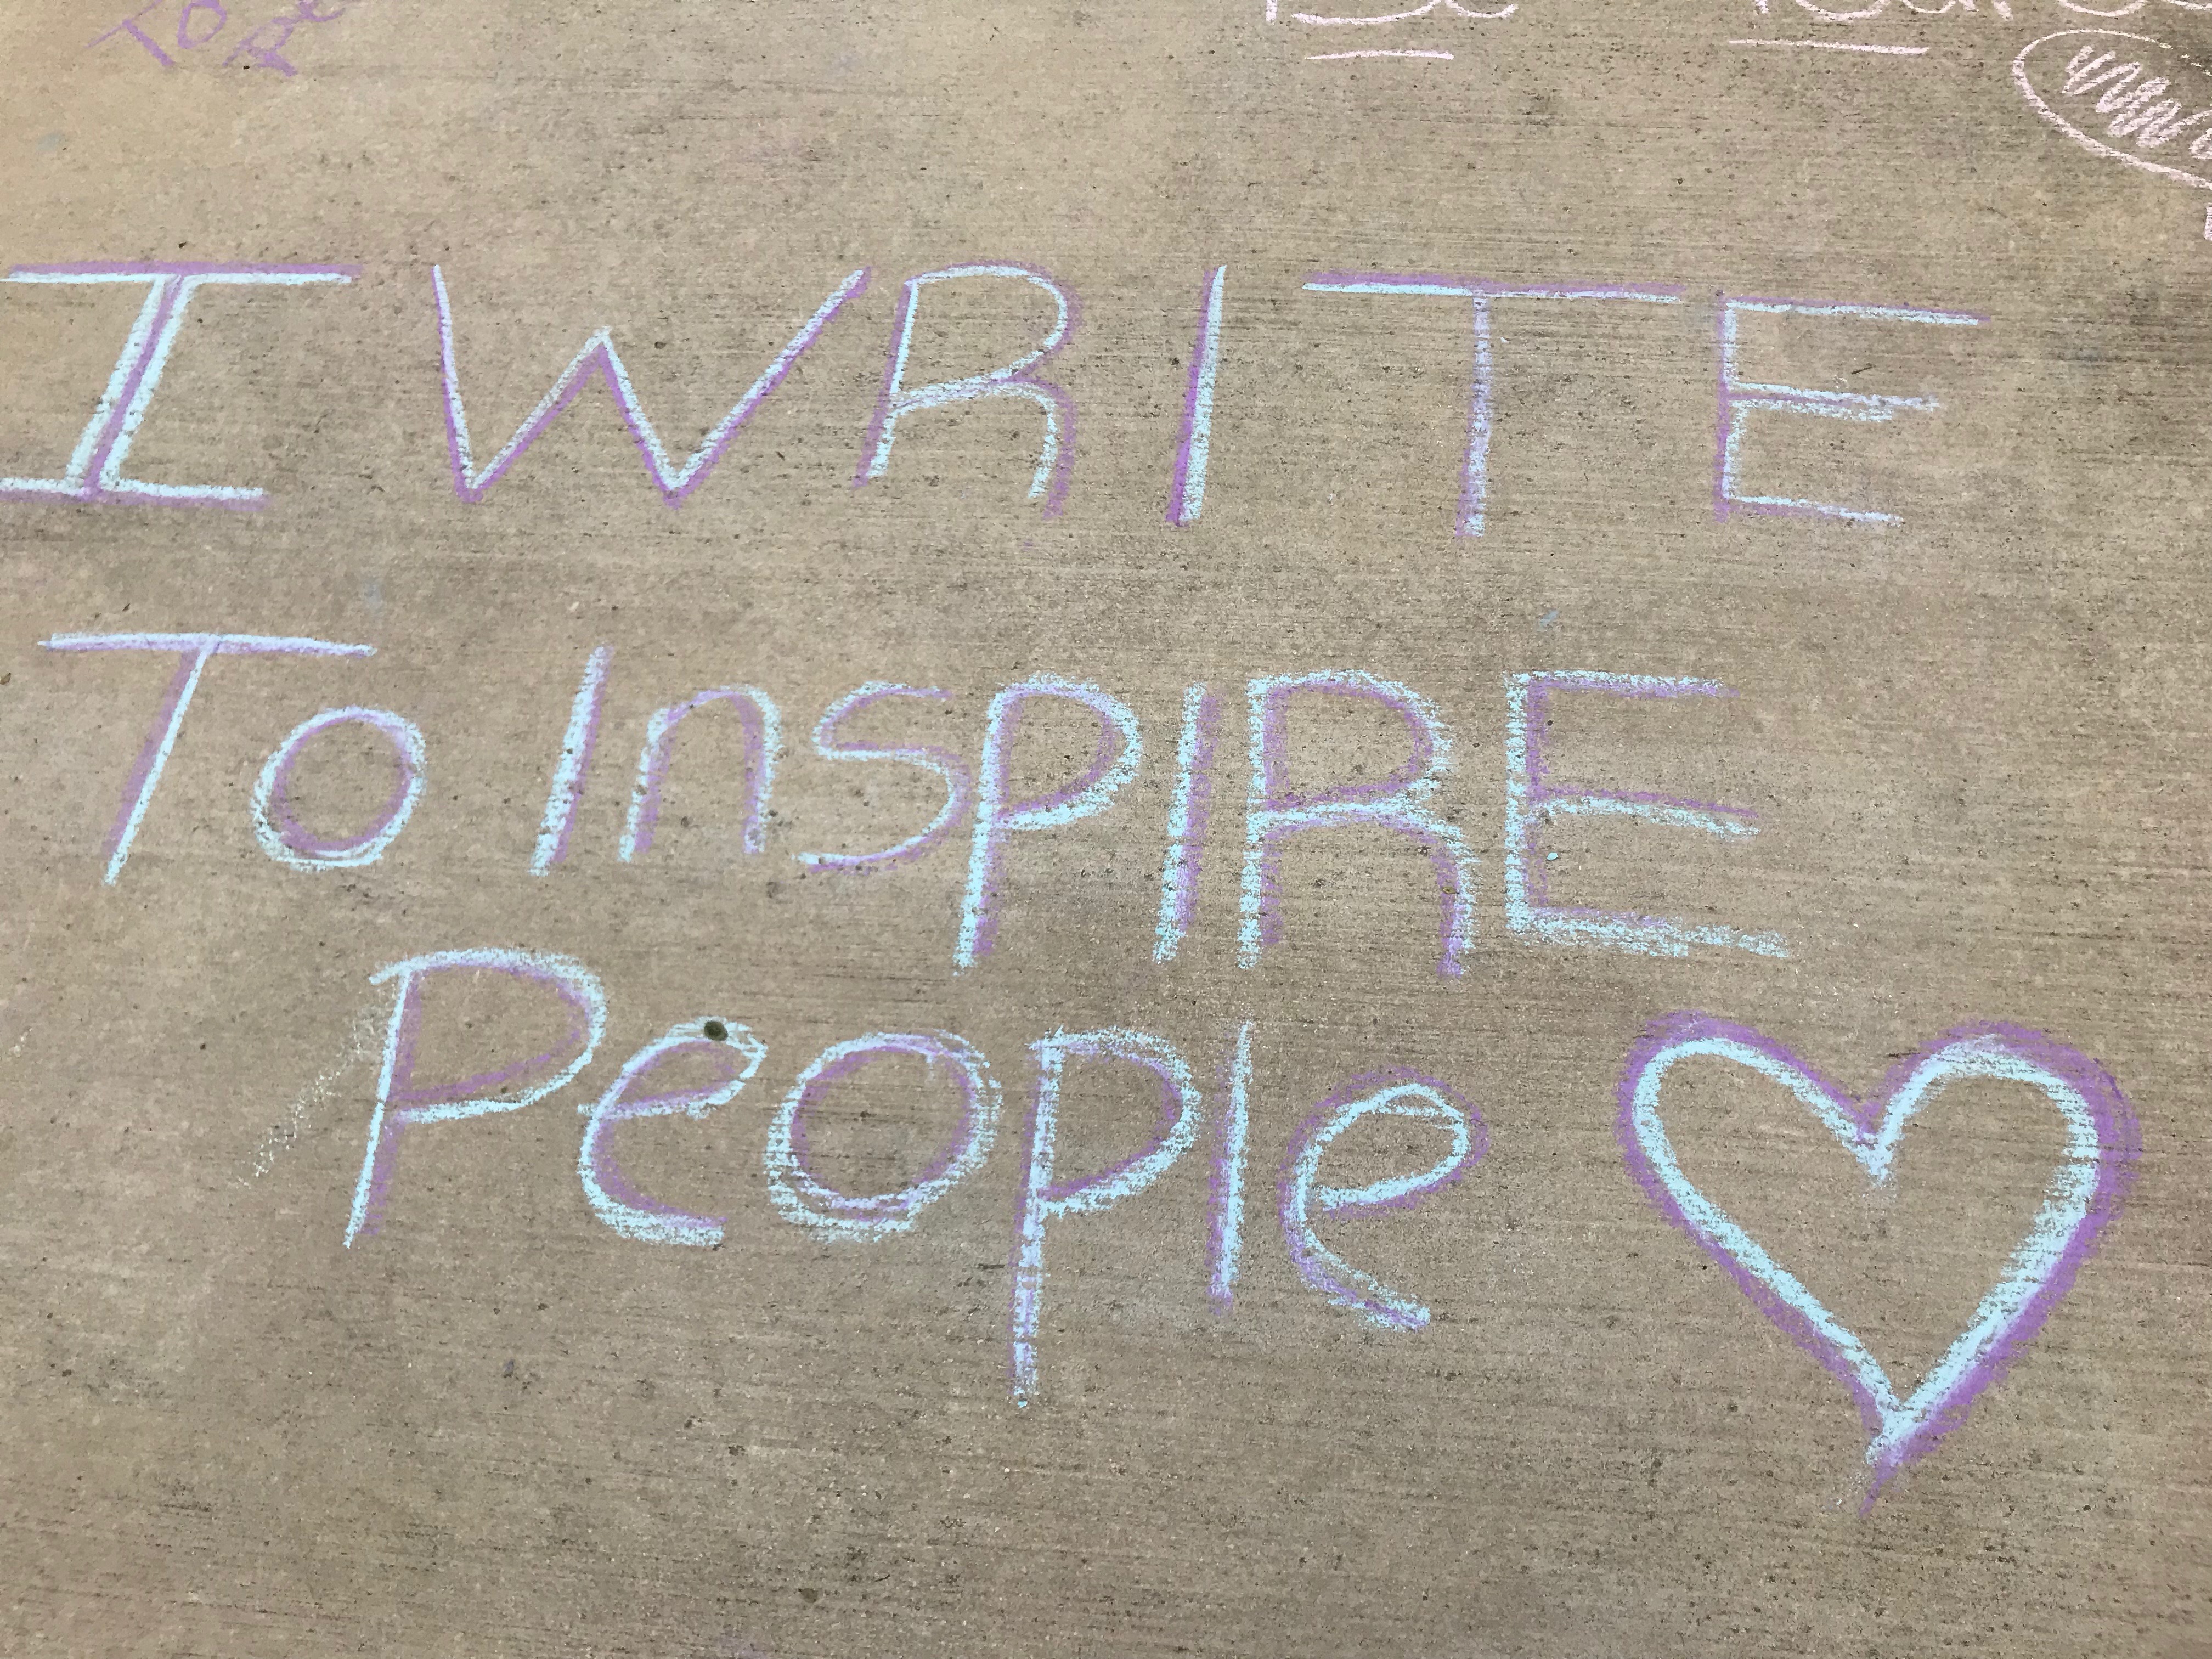 To Be
I WRITE
To InsPIRE
People